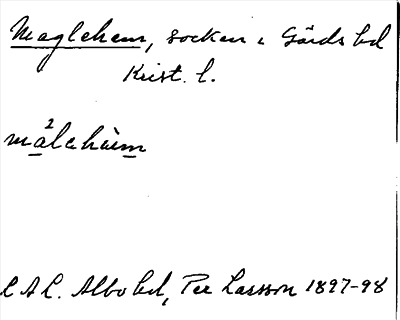 Maglehem, socken i Gärds hd
Krist. l.
målehàm
L A L. Albo hd, Per Larsson 1897-98